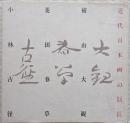 近代日本画の巨匠
横山大観
菱田春草
小林古径
大観
春草
古径